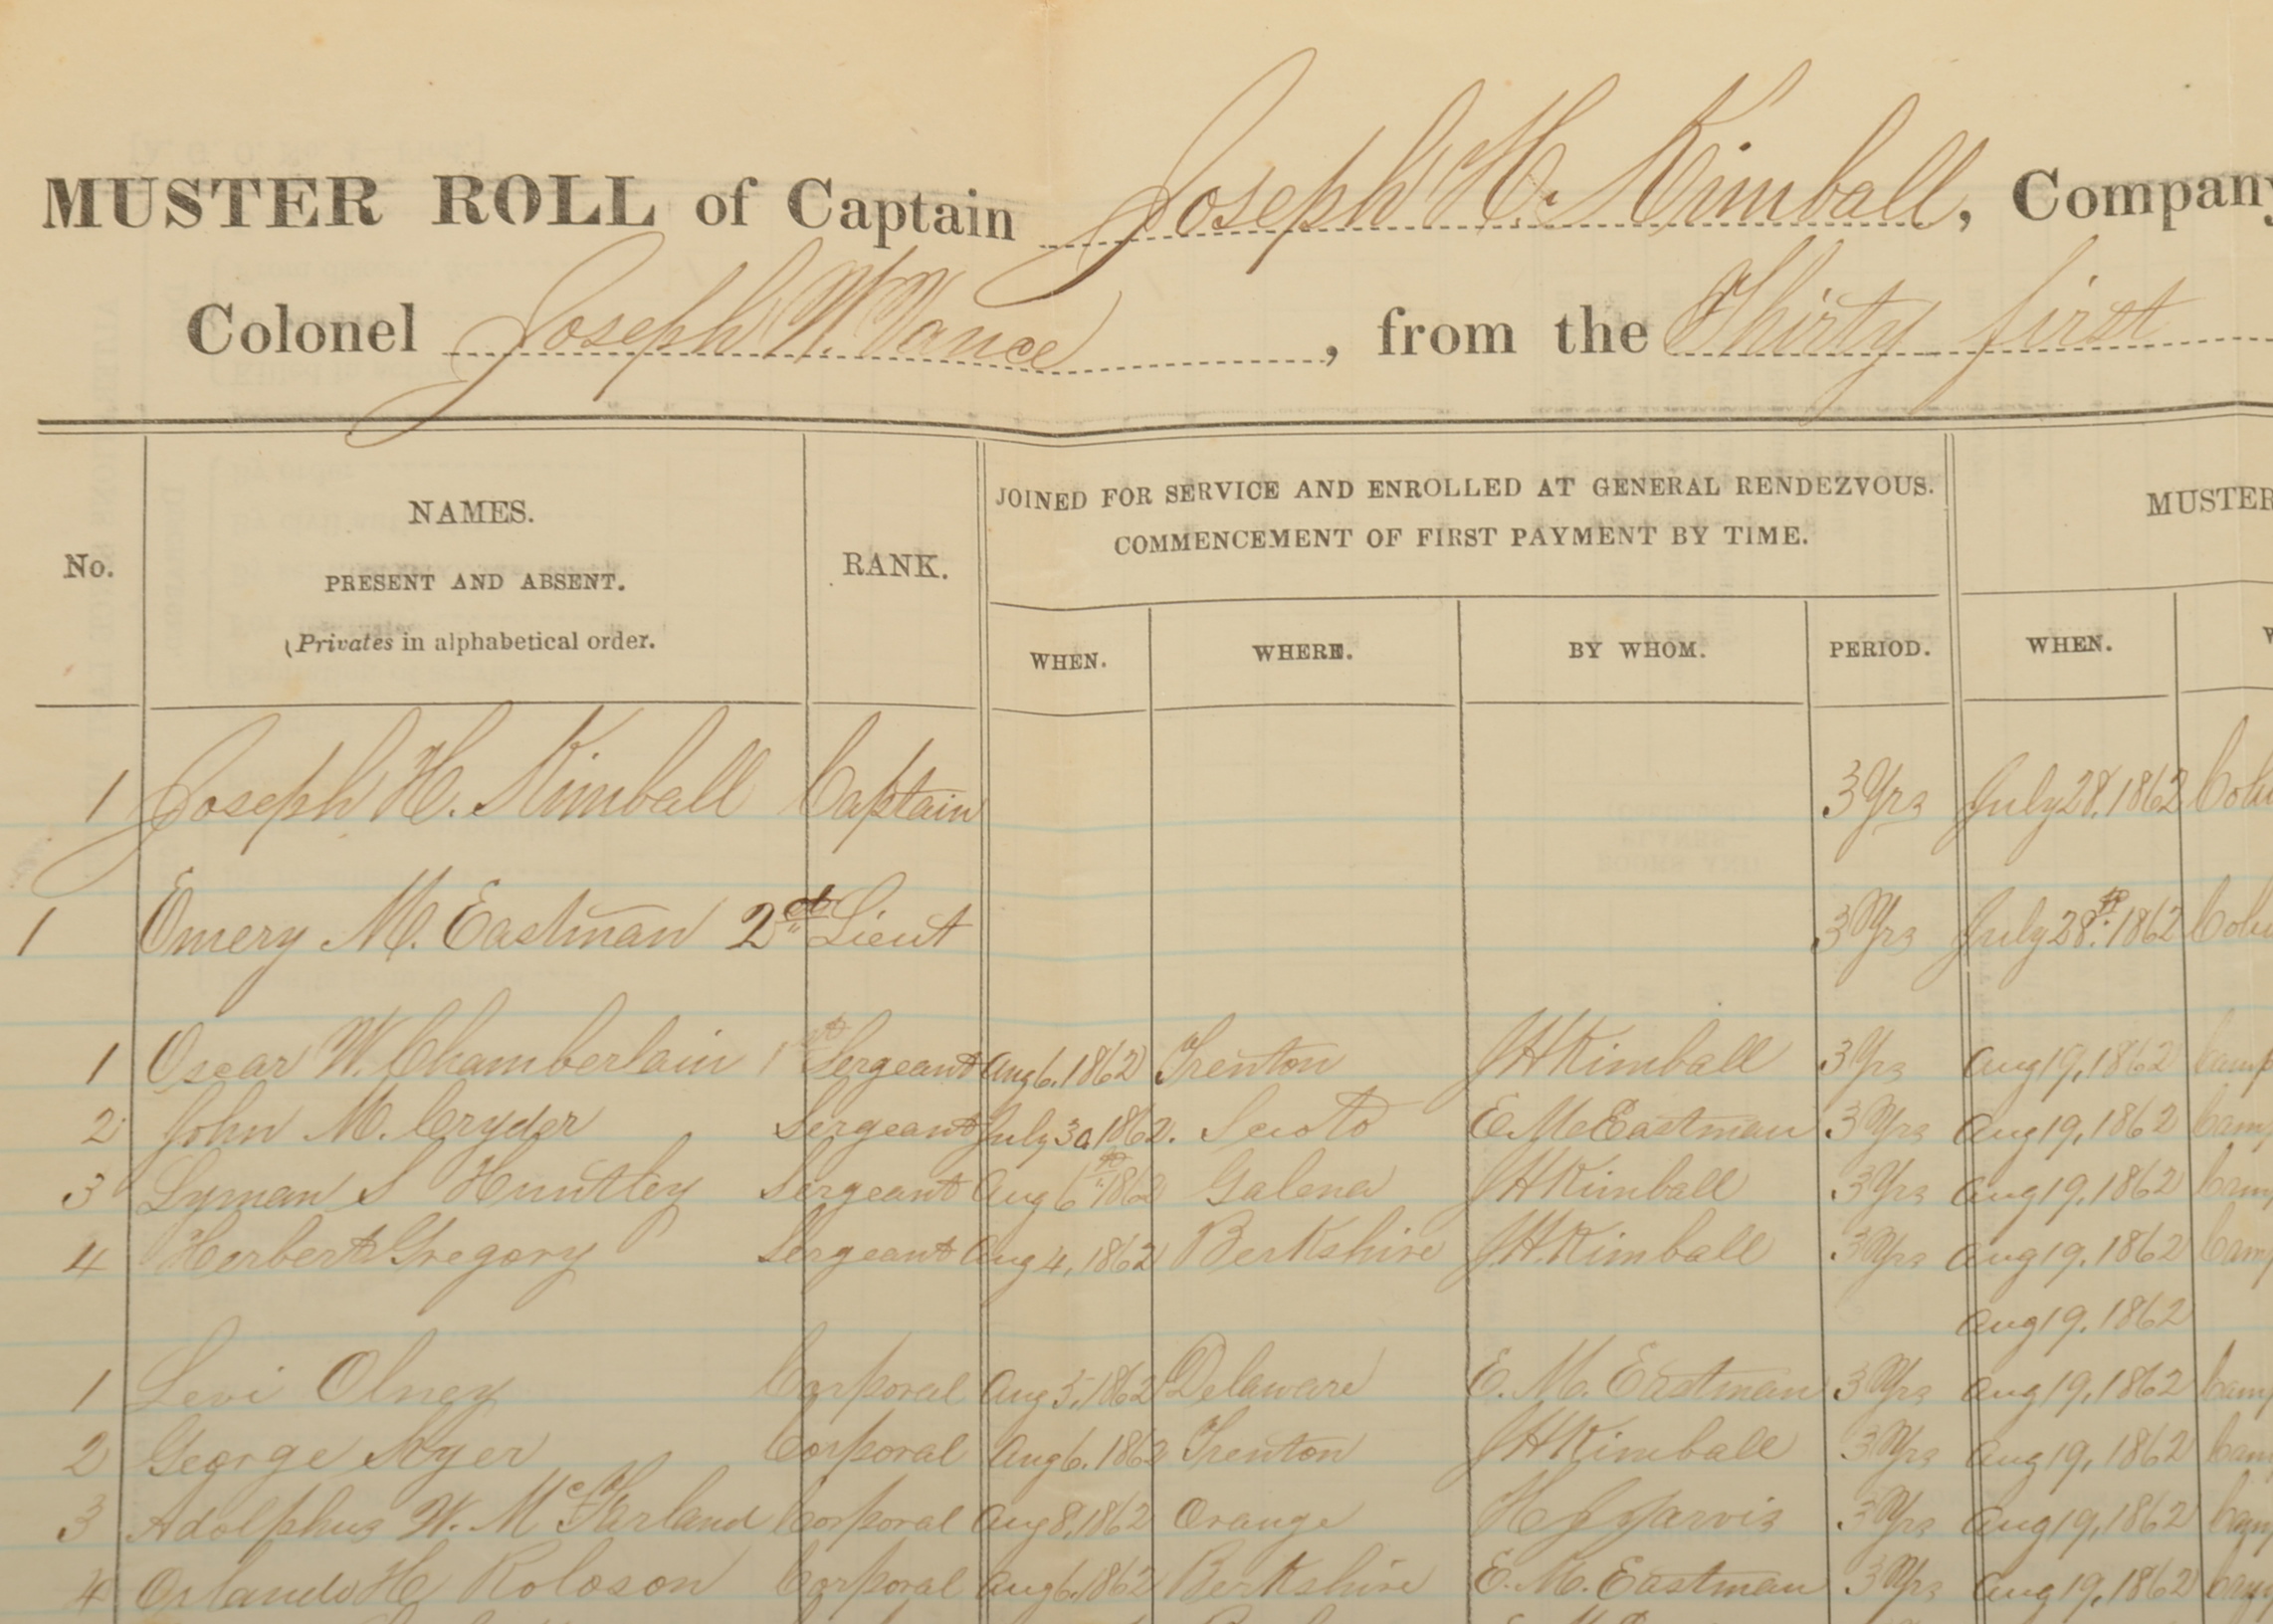 MUSTER ROLL of Captain Joseph H. Kimball, Company
Colonel Joseph W. Vance, from the Thirty first
No.
NAMES.
PRESENT AND ABSENT.
(Privates in alphabetical order.
RANK.
JOINED FOR SERVICE AND ENROLLED AT GENERAL RENDEZVOUS.
COMMENCEMENT OF FIRST PAYMENT BY TIME.
MUSTER
WHEN. WHERE. BY WHOM. PERIOD. WHEN.
1 Joseph H. Kimball Captain 3 Yrs July 28. 1862
1 Emery M. Eastman 2d Lieut 3 Yrs July 28th. 1862
1 Oscar W. Chamberlain 1st Sergeant Aug 6. 1862 Trenton J H Kimball 3 Yrs Aug 19, 1862 Camp
2 John M. Cryder Sergeant July 30 1862. Scioto E. M. Eastman 3 Yrs Aug 19, 1862
3 Lyman S Huntley Sergeant Aug 6th 1862 Galena J H Kimball 3 Yrs Aug 19, 1862
4 Herbert Gregory Sergeant Aug 4, 1862 Berkshire J. H. Kimball 3 Yrs Aug 19. 1862
Aug 19. 1862
1 Levi Olney Corporal Aug 5, 1862 Delaware E. M. Eastman 3 Yrs Aug 19, 1862
2 George Ayer Corporal Aug 6. 1862 Trenton J H Kimball 3 Yrs Aug 19, 1862
3 Adolphus W. McFarland Corporal Aug 8, 1862 Orange H J Jarvis 3 Yrs Aug 19, 1862
4 Orlando H Roloson Corporal Aug 6. 1862 Berkshire E. M. Eastman 3 Yrs Aug 19, 1862